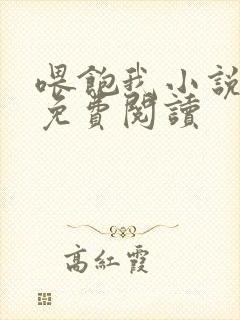 喂飽我小說
免費閱讀
高紅霞